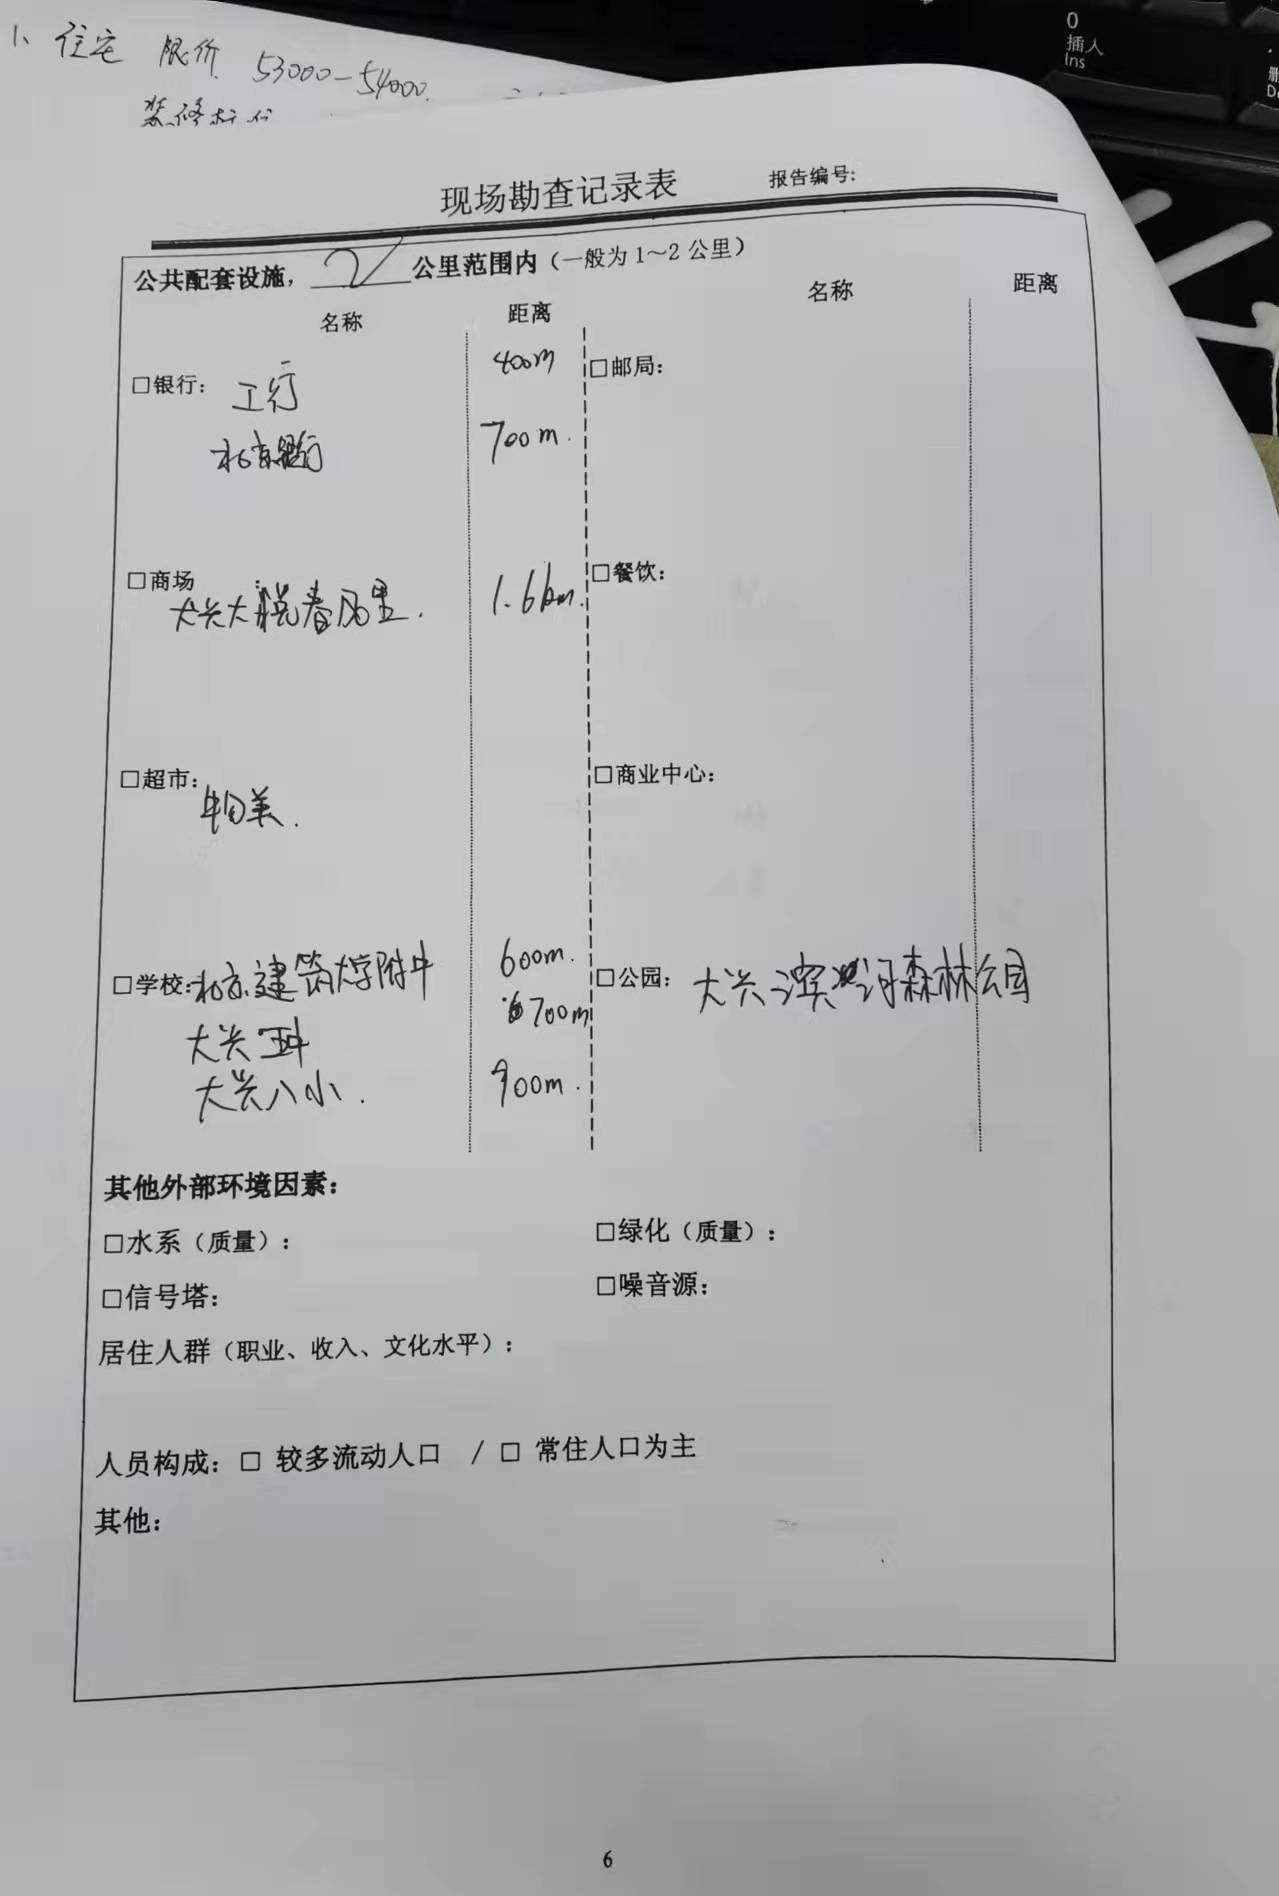 1、住宅 限价 53000-54000.
0
插入
Ins
现场勘查记录表 报告编号:
公共配套设施， 2 公里范围内（一般为 1～2 公里）
名称 距离 名称 距离
□银行： 工行 400m □邮局：
北京银行 700m.
□商场 大兴大悦春风里. 1.6km. □餐饮：
□超市： 物美. □商业中心：
□学校： 北京建筑大学附中 600m. □公园： 大兴滨河森林公园
大兴五中 700m
大兴八小. 900m.
其他外部环境因素：
□水系（质量）： □绿化（质量）：
□信号塔： □噪音源：
居住人群（职业、收入、文化水平）：
人员构成：□ 较多流动人口 / □ 常住人口为主
其他：
6